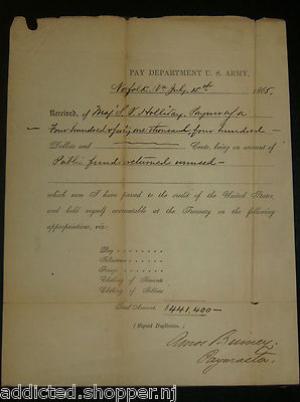 PAY DEPARTMENT U. S. ARMY,
Norfolk Va July 15th 1865.
Received, of Maj S. V. Holliday, Paymr U.S.A
Four hundred & forty one thousand, four hundred —
Dollars and — Cents, being on account of
Public funds returned unused —
which sum I have passed to the credit of the United States,
and hold myself accountable at the Treasury on the following
appropriations, viz:
Pay
Subsistence
Forage
Clothing of Servants
Clothing of Soldiers
Total Amount, $441,400 —
(Signed Duplicates.)
Amos Binney
Paymaster
addicted.shopper.nj